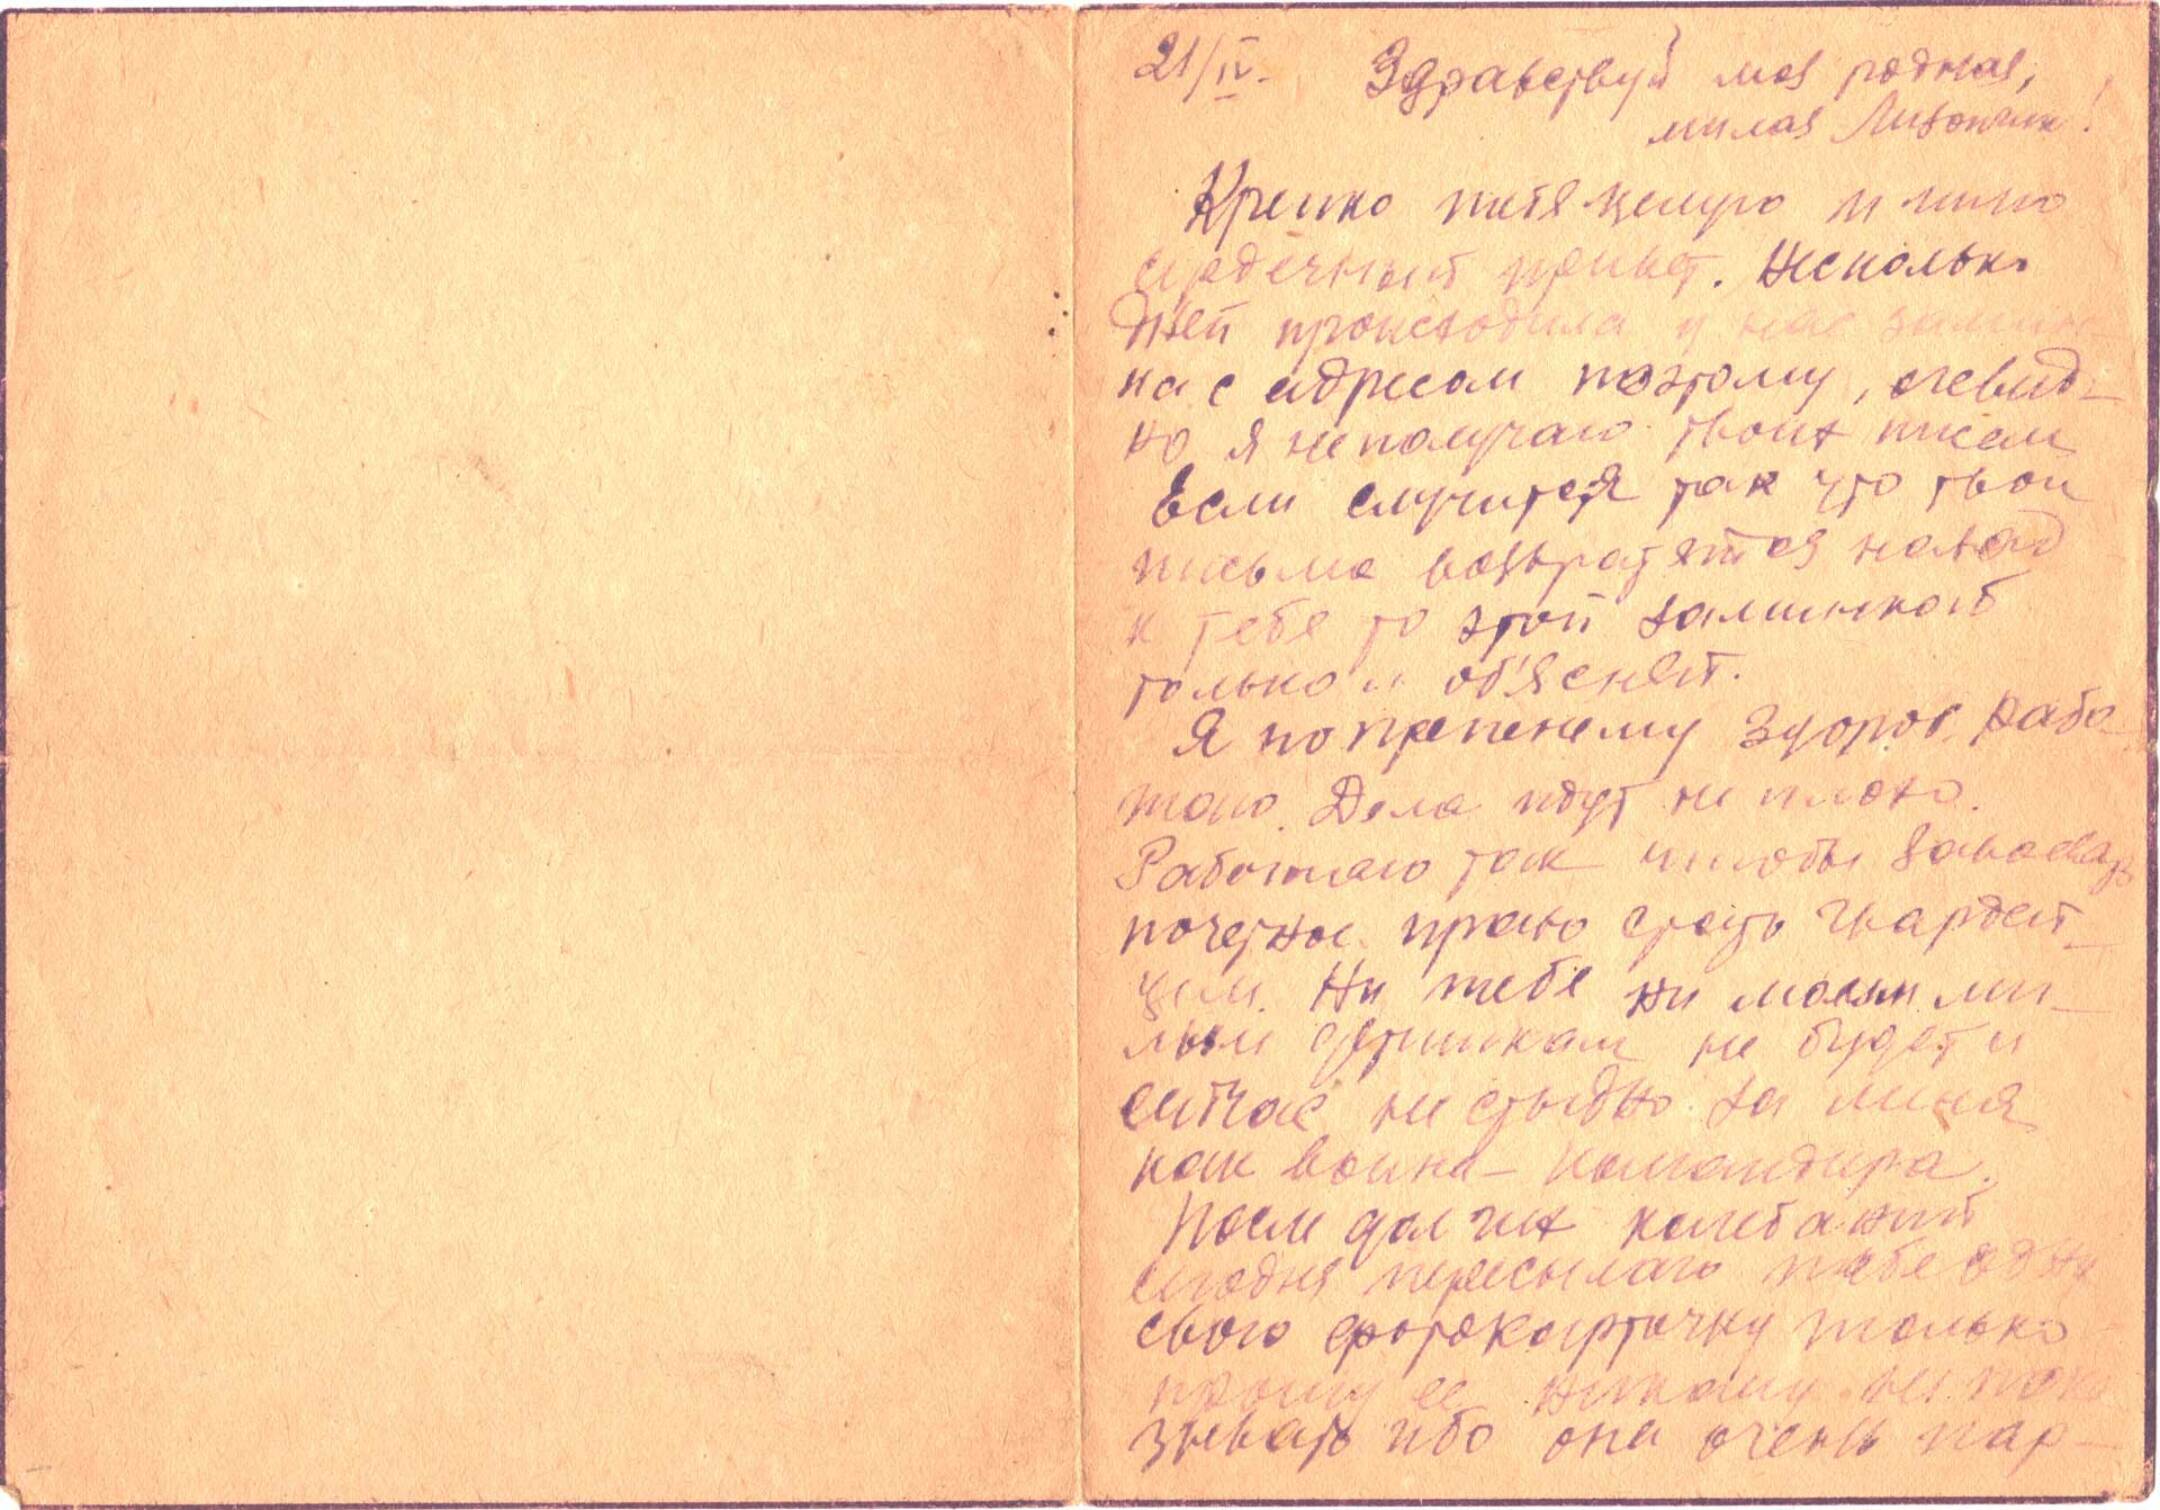 21/IV. Здравствуй моя родная,
милая Лизончик!
Крепко тебя целую и шлю
сердечный привет. Несколько
дней происходила у нас замин-
ка с адресом поэтому, очевид-
но я не получаю твоих писем
Если случится так что твои
письма возвратятся назад
к тебе то этой заминкой
только и об'яснят.
Я по прежнему здоров, рабо-
таю. Дела идут не плохо.
Работаю так чтобы завоевать
почетное право стать гвардей-
цем. Ни тебе ни моим ми-
лым детишкам не будет и
сейчас не стыдно за меня
как воина - командира.
После долгих колебаний
сегодня пересылаю тебе одну
свою фотокарточку только
прошу ее никому не пока
зывать ибо она очень пар-